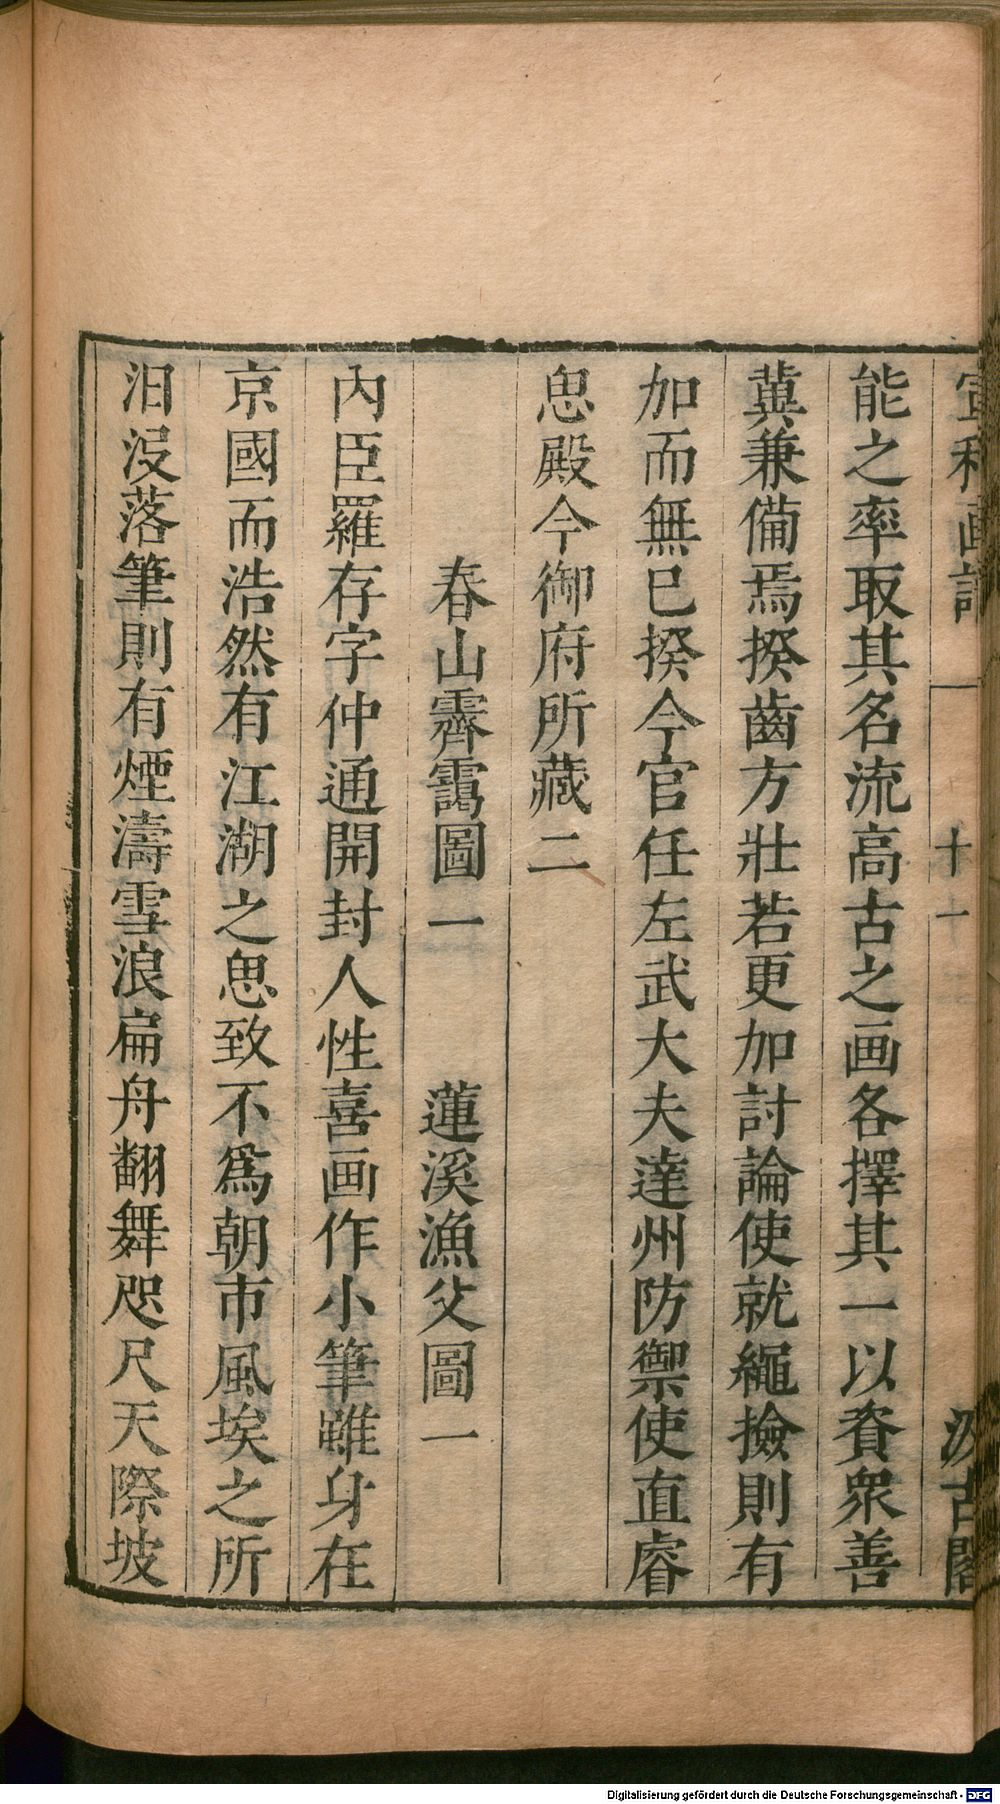 宣和画譜 十一 汲古閣
能之率取其名流高古之画各擇其一以資衆善
冀兼備焉揆齒方壯若更加討論使就繩撿則有
加而無已揆今官任左武大夫達州防禦使直睿
思殿今御府所藏二
春山霽靄圖一 蓮溪漁父圖一
內臣羅存字仲通開封人性喜画作小筆雖身在
京國而浩然有江湖之思致不爲朝市風埃之所
汩沒落筆則有煙濤雪浪扁舟翻舞咫尺天際坡
Digitalisierung gefördert durch die Deutsche Forschungsgemeinschaft - DFG